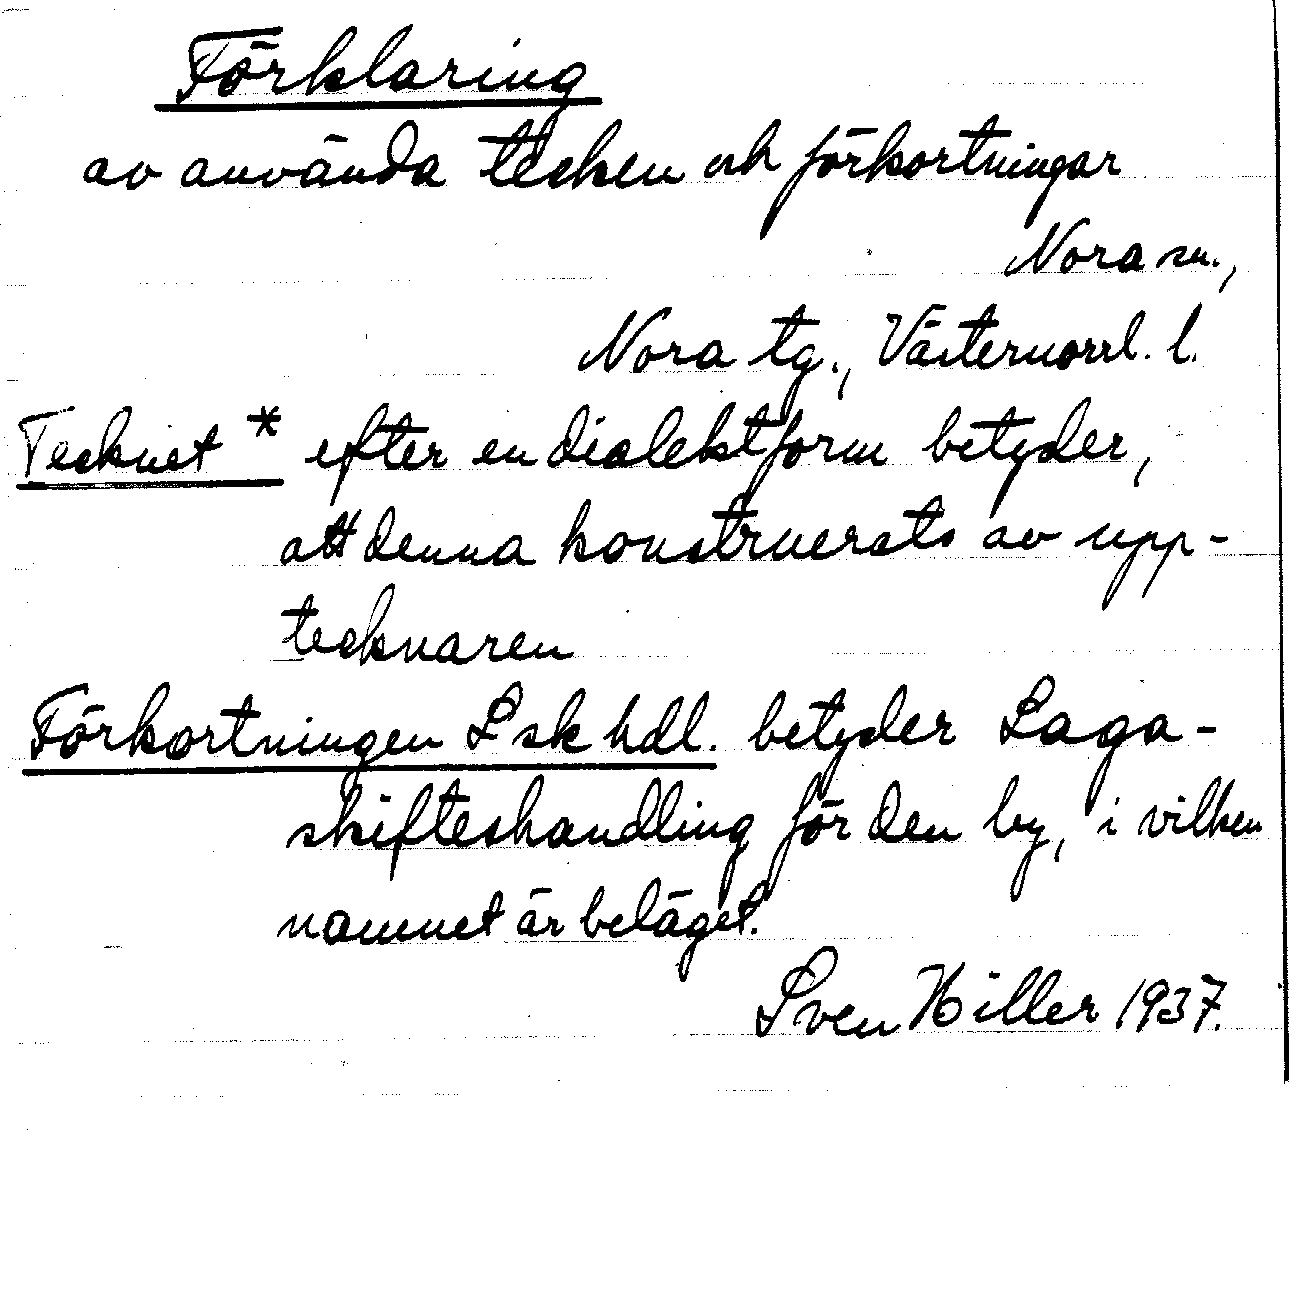 Förklaring
av använda tecken och förkortningar
Nora sn.,
Nora tg., Västernorrl. l.
Tecknet * efter en dialektform betyder,
att denna konstruerats av upp-
tecknaren
Förkortningen L sk hdl. betyder Laga-
skifteshandling för den by, i vilken
namnet är beläget.
Sven Hiller 1937.